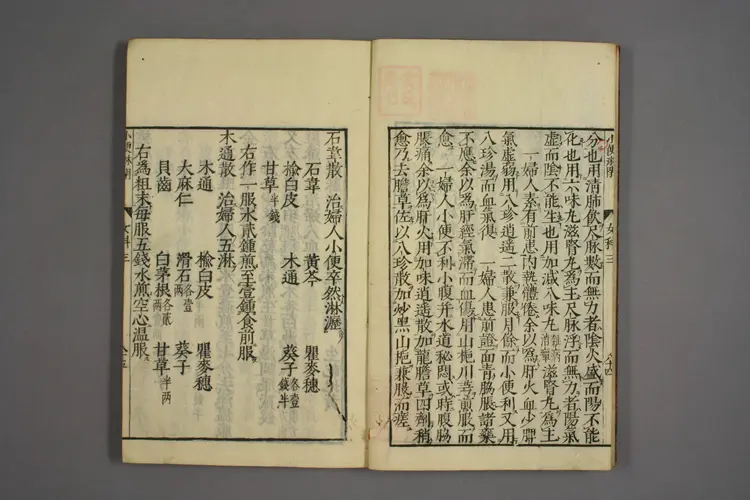 小便淋閉 女科三
分也用清肺飲尺脉數而無力者陰火盛而陽不能
化也用六味丸滋腎丸爲主尺脉浮而無力者陽氣
虛而陰不能生也用加減八味丸滋腎丸爲主
一婦人素有前患內熱體倦余以爲肝火血少脾
氣虛弱用八珍逍遙二散兼服月餘而小便利又用
八珍湯而血氣復 一婦人患前證面青脇脹諸藥
不應余以爲肝經氣滯而血傷用山梔川芎煎服而
愈 一婦人小便不利小腹并水道秘悶或時腹脇
脹痛余以爲肝火用加味逍遙散加龍膽草四劑稍
愈乃去膽草佐以八珍散加炒黑山梔兼服而瘥
石韋散 治婦人小便卒然淋瀝
石韋 黃芩 瞿麥穗
榆白皮 木通 葵子各壹錢半
甘草半錢
右作一服水貳鍾煎至壹鍾食前服
木通散 治婦人五淋
木通 榆白皮 瞿麥穗
大麻仁 滑石各壹兩 葵子
貝齒 白茅根各貳兩 甘草半兩
右爲粗末每服五錢水煎空心溫服
小便淋閉 女科三